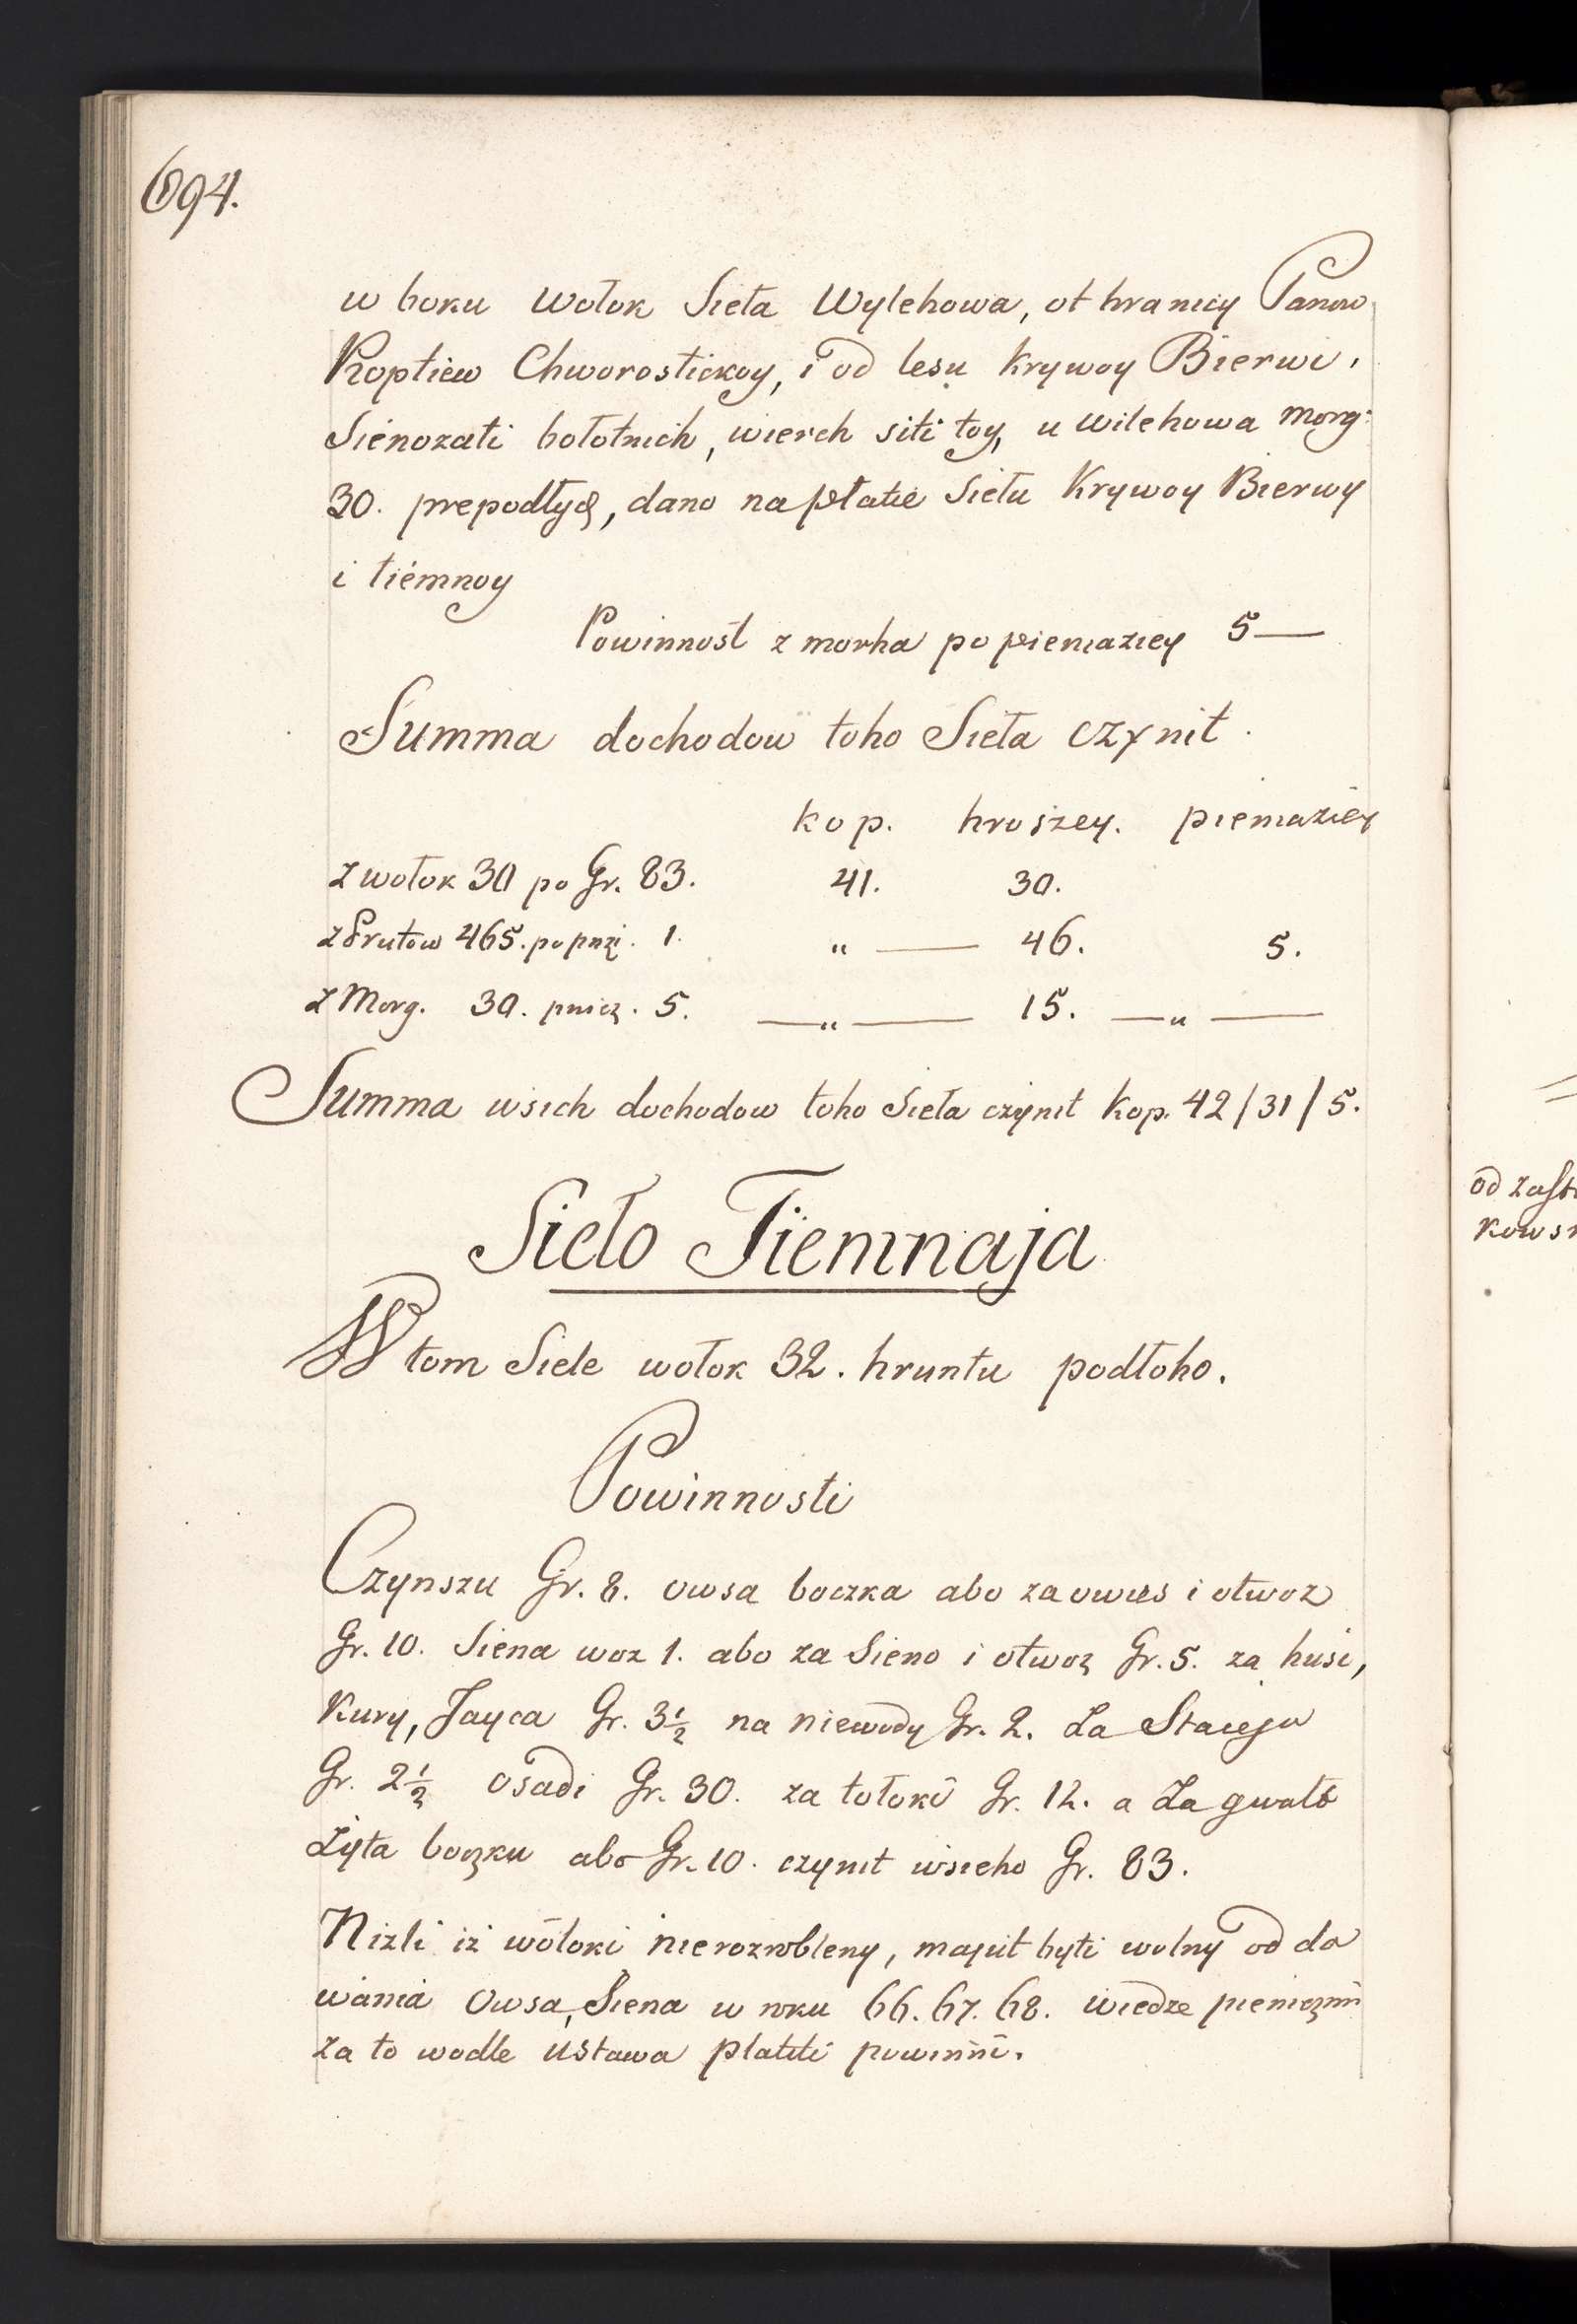 694.
w boku wołok Sieła Wylehowa, ot hranicy Panow
Koptiew Chworostickoy, i od lesu Krywoy Bierwi,
Sienozati bołotnich, wierch siti toy, u wilehowa morg:
30. prepodłych, dano na płatie Siełu Krywoy Bierwy
i tiemnoy
Powinnost z morha po pieniaziey 5 —
Summa dochodow toho Sieła czynit.
kop. hroszey. pieniaziey
z wołok 30 po Gr. 83. 41. 30.
z Prutow 465. po pnzi. 1. " — 46. 5.
z Morg. 30. pnicz. 5. — " — 15. — " —
Summa wsich dochodow toho Sieła czynit Kop. 42/31/5.
Sieło Tiemnaja
W tom Siele wołok 32. hruntu podłoho.
Powinnosti
Czynszu Gr. 8. owsa boczka abo za owies i otwoz
Gr. 10. Siena woz 1. abo za Sieno i otwoz Gr. 5. za husi,
Kury, Jayca Gr. 3½ na niewody Gr. 2. Za Staciju
Gr. 2½ osadi Gr. 30. za tołoki Gr. 12. a Za gwałt
Żyta boczku abo Gr. 10. czynit wsieho Gr. 83.
Nizli iż wołoki nierozrobleny, majut byti wolny od da
wania Owsa, Siena w roku 66. 67. 68. wiedże pieniezmi
za to wodle ustawa platiti powinni.
od zast
kows